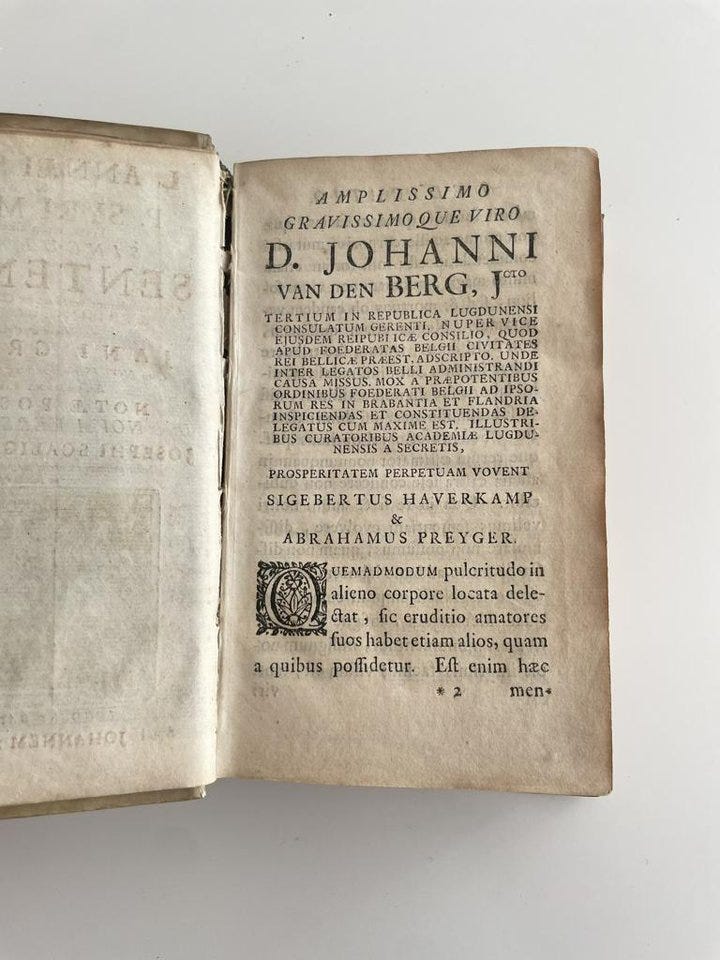 AMPLISSIMO
GRAVISSIMOQUE VIRO
D. JOHANNI
VAN DEN BERG, Jcto
TERTIUM IN REPUBLICA LUGDUNENSI
CONSULATUM GERENTI, NUPER VICE
EJUSDEM REIPUBLICÆ CONSILIO, QUOD
APUD FOEDERATAS BELGII CIVITATES
REI BELLICÆ PRÆEST, ADSCRIPTO. UNDE
INTER LEGATOS BELLI ADMINISTRANDI
CAUSA MISSUS. MOX A PRÆPOTENTIBUS
ORDINIBUS FOEDERATI BELGII AD IPSO-
RUM RES IN BRABANTIA ET FLANDRIA
INSPICIENDAS ET CONSTITUENDAS DE-
LEGATUS CUM MAXIME EST, ILLUSTRI-
BUS CURATORIBUS ACADEMIÆ LUGDU-
NENSIS A SECRETIS,
PROSPERITATEM PERPETUAM VOVENT
SIGEBERTUS HAVERKAMP
&
ABRAHAMUS PREYGER.
QUEMADMODUM pulcritudo in
alieno corpore locata dele-
ctat, ſic eruditio amatores
ſuos habet etiam alios, quam
a quibus poſſidetur. Eſt enim hæc
* 2 men-